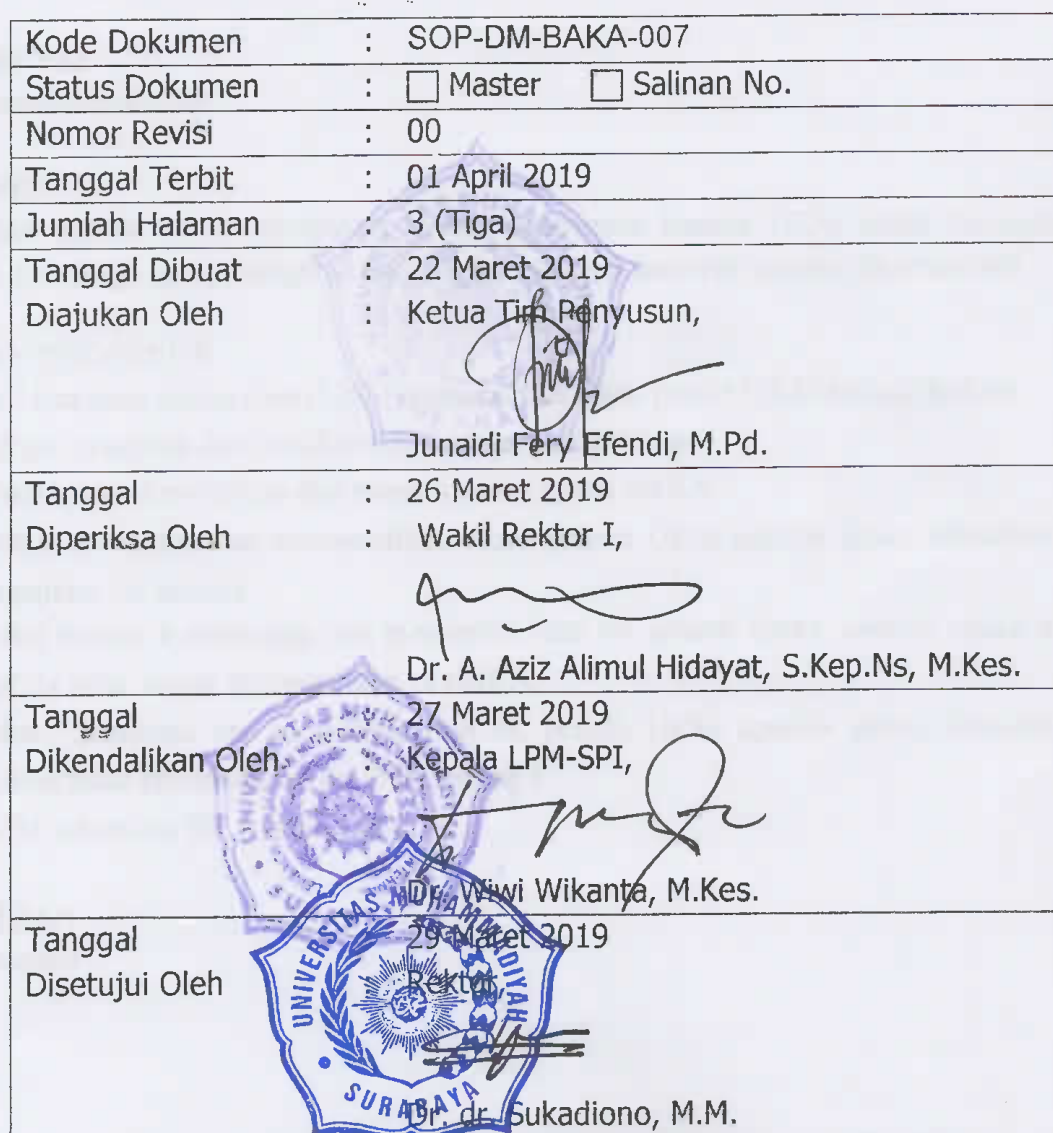 Kode Dokumen : SOP-DM-BAKA-007
Status Dokumen : Master Salinan No.
Nomor Revisi : 00
Tanggal Terbit : 01 April 2019
Jumlah Halaman : 3 (Tiga)
Tanggal Dibuat : 22 Maret 2019
Diajukan Oleh : Ketua Tim Penyusun,
Junaidi Fery Efendi, M.Pd.
Tanggal 26 Maret 2019
Diperiksa Oleh : Wakil Rektor I,
Dr. A. Aziz Alimul Hidayat, S.Kep.Ns, M.Kes.
Tanggal 27 Maret 2019
Dikendalikan Oleh : Kepala LPM-SPI,
Dr. Wiwi Wikanta, M.Kes.
Tanggal 29 Maret 2019
Disetujui Oleh Rektor,
Dr. dr. Sukadiono, M.M.
UNIVERSITAS MUHAMMADIYAH
SURABAYA